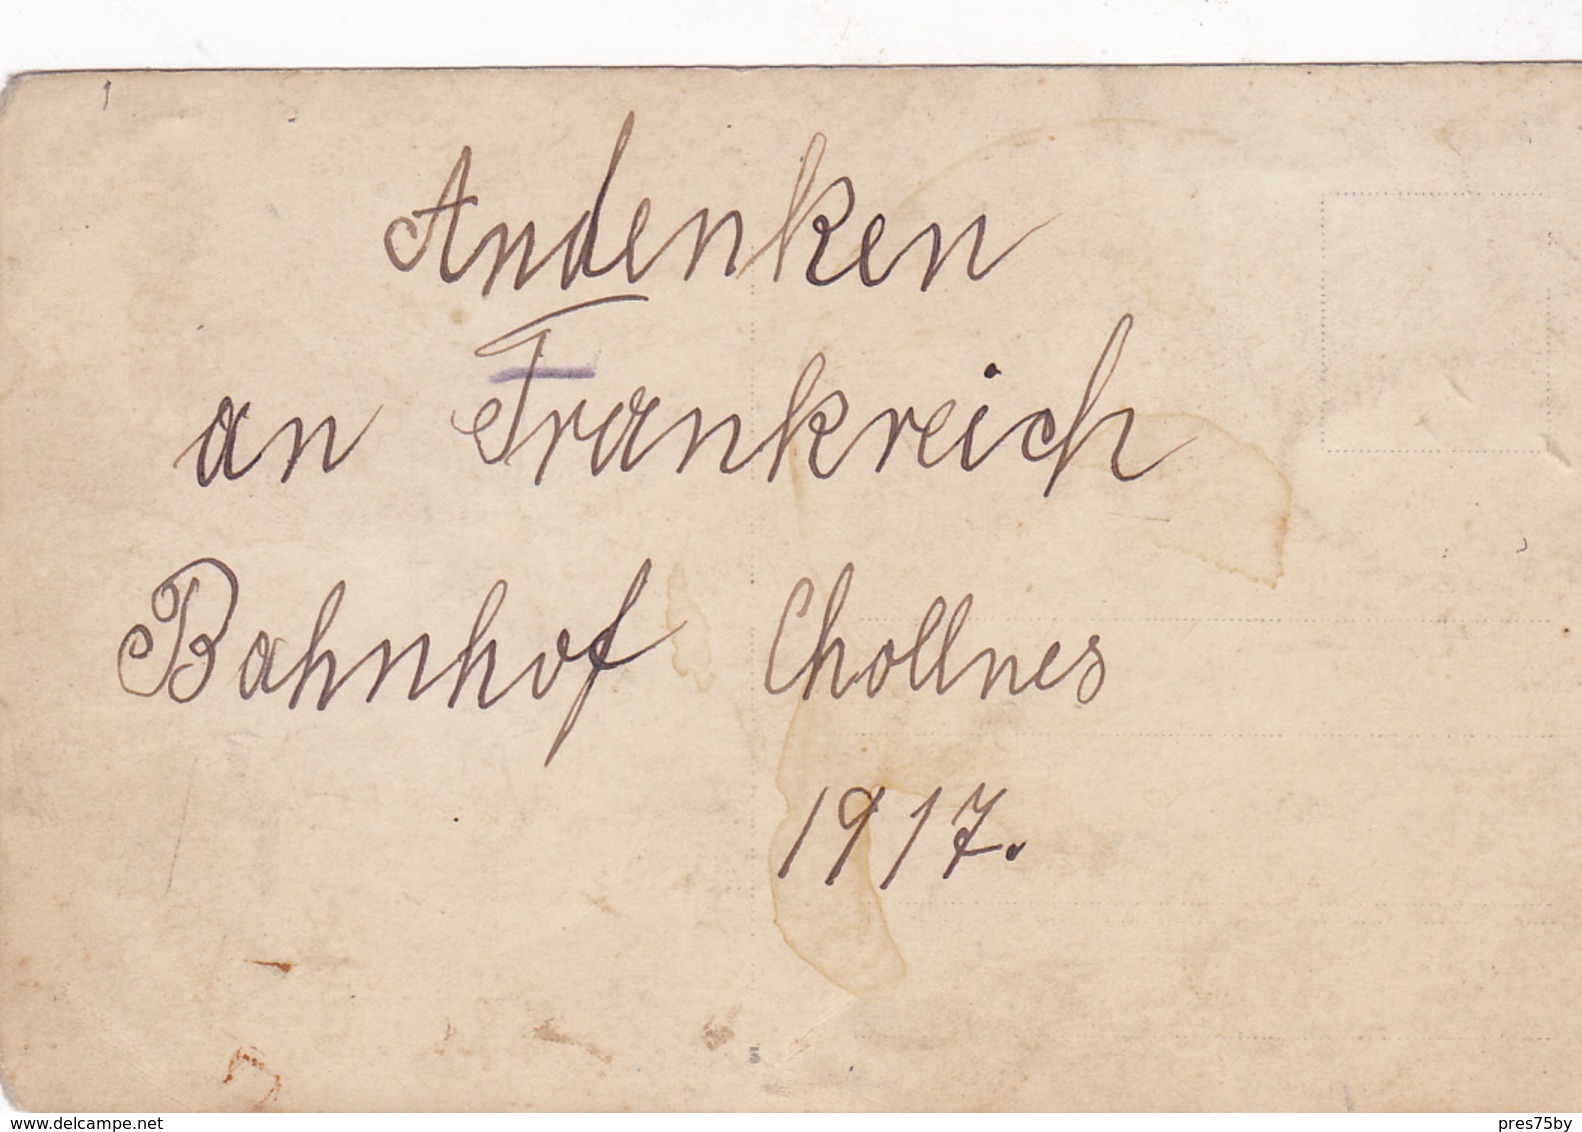 Andenken
an Frankreich
Bahnhof Chollnes
1917.
www.delcampe.net
pres75by